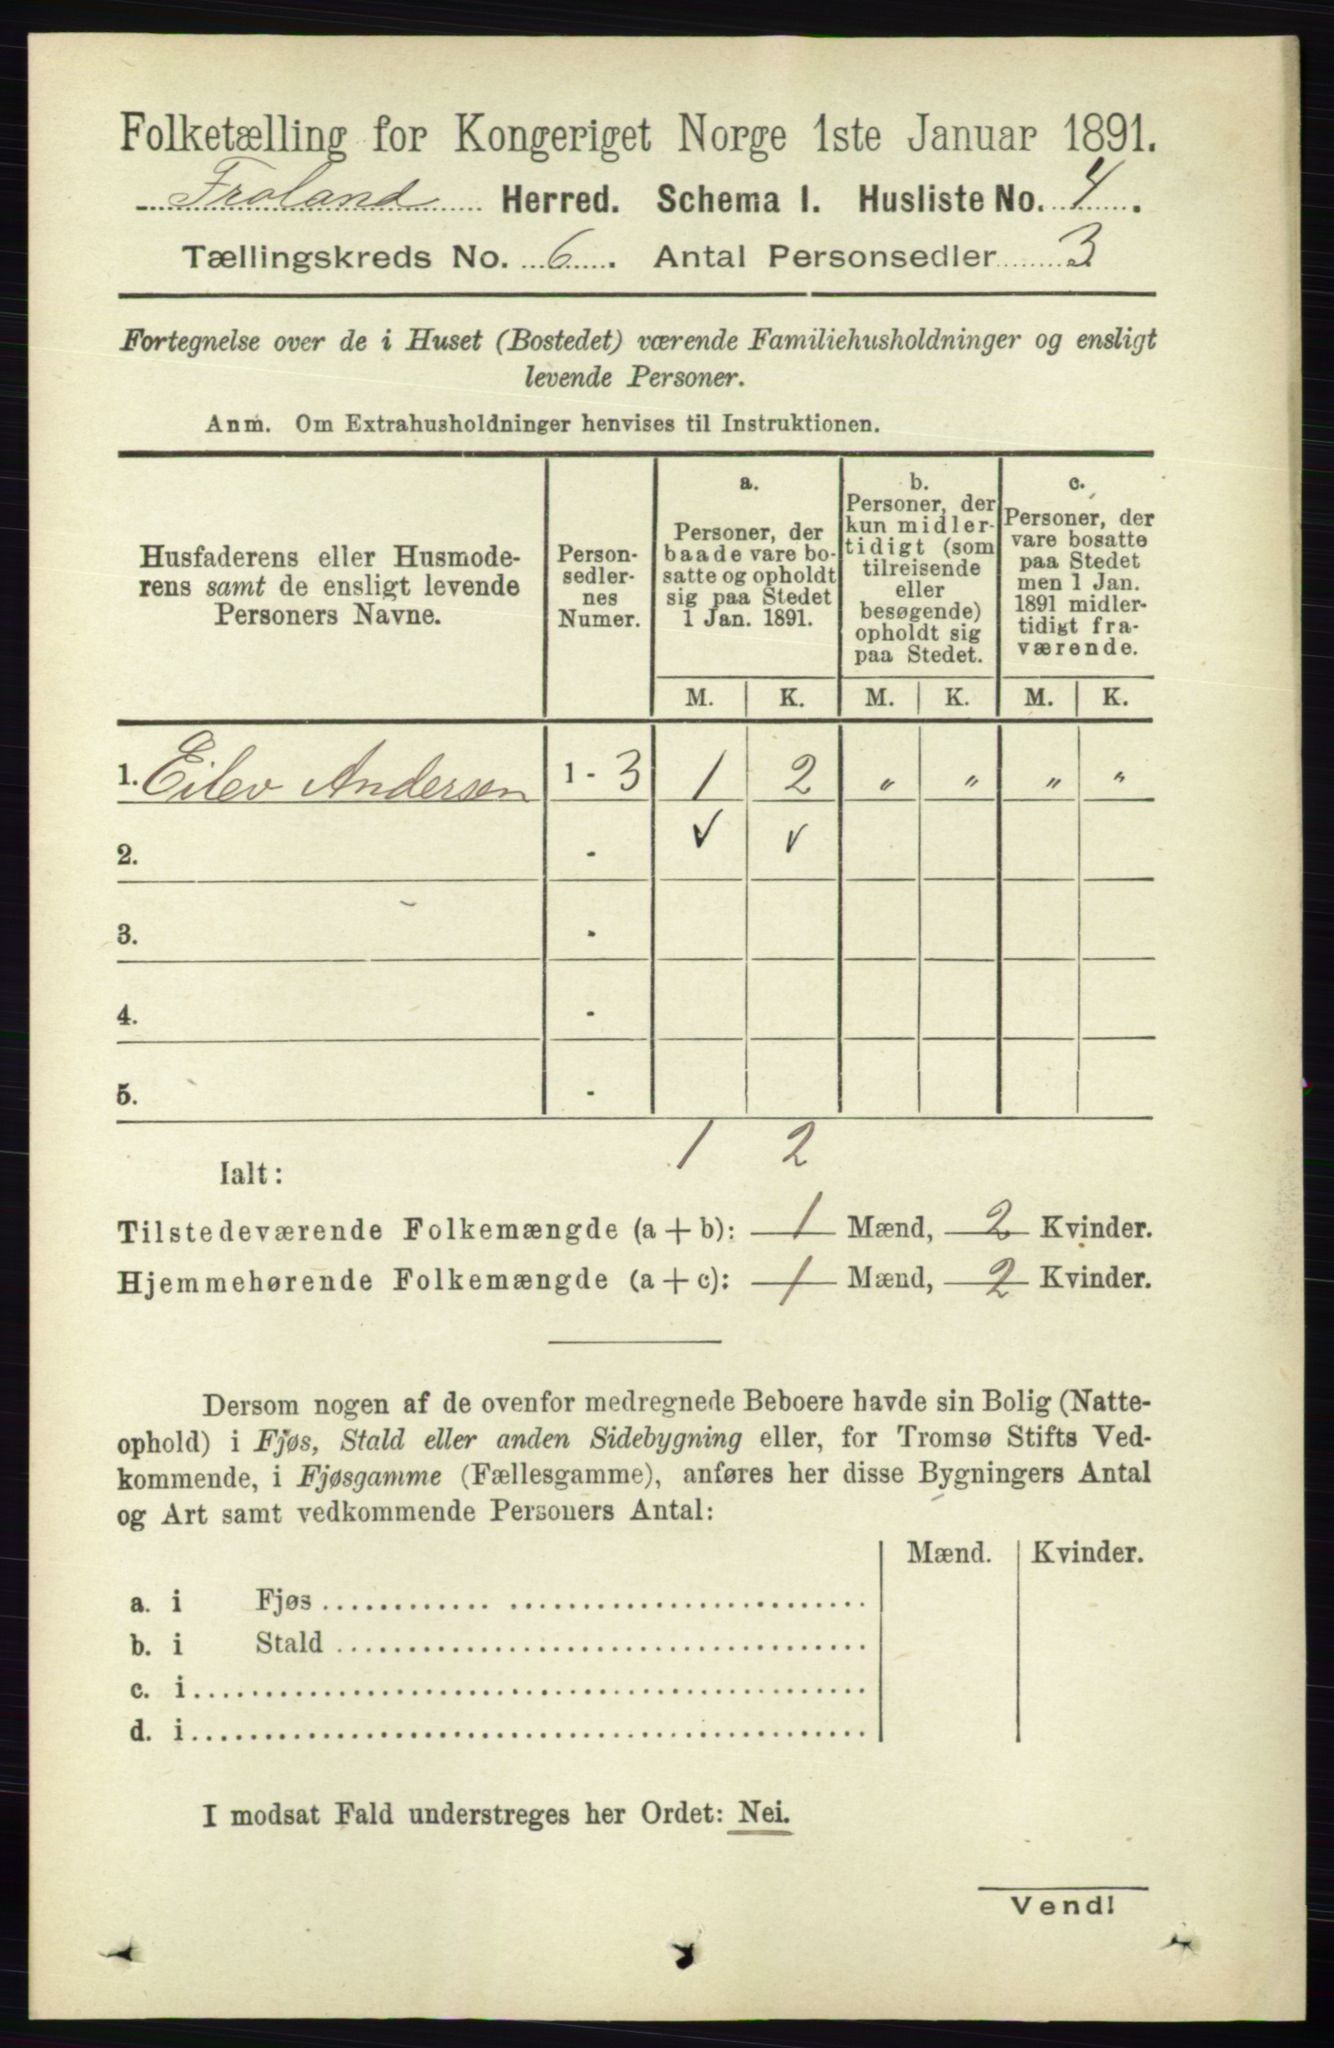 Folketælling for Kongeriget Norge 1ste Januar 1891.
Froland Herred. Schema I. Husliste No. 4.
Tællingskreds No. 6. Antal Personsedler 3
Fortegnelse over de i Huset (Bostedet) værende Familiehusholdninger og ensligt
levende Personer.
Anm. Om Extrahusholdninger henvises til Instruktionen.
Husfaderens eller Husmode-
rens samt de ensligt levende
Personers Navne.
Person-
sedler-
nes
Numer.
a.
Personer, der
baade vare bo-
satte og opholdt
sig paa Stedet
1 Jan. 1891.
b.
Personer, der
kun midler-
tidigt (som
tilreisende
eller
besøgende)
opholdt sig
paa Stedet.
c.
Personer, der
vare bosatte
paa Stedet
men 1 Jan.
1891 midler-
tidigt fra-
værende.
M. K. M. K. M. K.
1. Eilev Andersen 1 - 3 1 2 " " " "
2. - ✓ ✓
3. -
4. -
5. -
1 2
Ialt:
Tilstedeværende Folkemængde (a + b): 1 Mænd, 2 Kvinder.
Hjemmehørende Folkemængde (a + c): 1 Mænd, 2 Kvinder.
Dersom nogen af de ovenfor medregnede Beboere havde sin Bolig (Natte-
ophold) i Fjøs, Stald eller anden Sidebygning eller, for Tromsø Stifts Ved-
kommende, i Fjøsgamme (Fællesgamme), anføres her disse Bygningers Antal
og Art samt vedkommende Personers Antal:
Mænd. Kvinder.
a. i Fjøs
b. i Stald
c. i
d. i
I modsat Fald understreges her Ordet: Nei.
Vend!